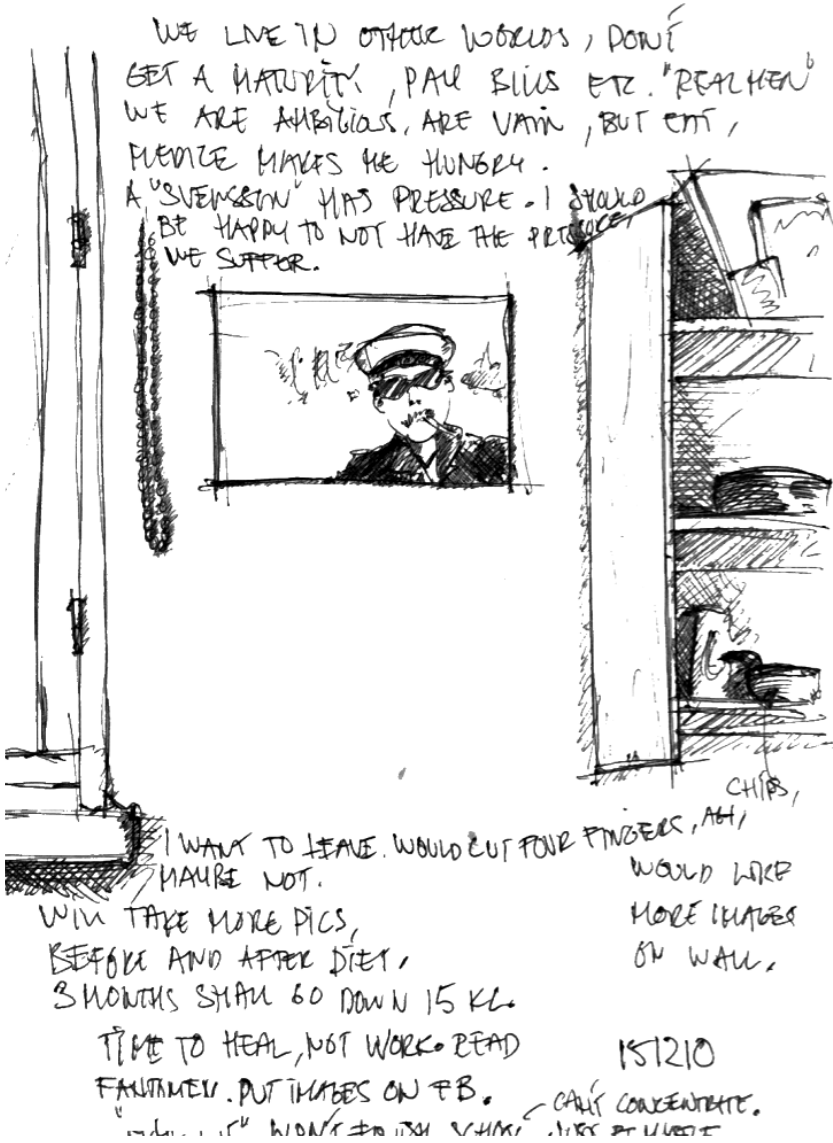 WE LIVE IN OTHER WORLDS, DON'T
GET A MATURITY, PAY BILLS ETC. "REAL MEN"
WE ARE AMBITIOUS, ARE VAIN, BUT EAT,
MEDICE MAKES ME HUNGRY.
A "SVENSSON" HAS PRESSURE. I SHOULD
BE HAPPY TO NOT HAVE THE PRESSURE,
WE SUFFER.
CHIPS,
I WANT TO LEAVE. WOULD CUT FOUR FINGERS, AH,
MAYBE NOT.
WOULD LIKE
MORE IMAGES
ON WALL.
WILL TAKE MORE PICS,
BEFORE AND AFTER DIET,
3 MONTHS SHALL GO DOWN 15 KG.
TIME TO HEAL, NOT WORK. READ
FANTOMEN. PUT IMAGES ON FB.
151210
CAN'T CONCENTRATE.
WON'T